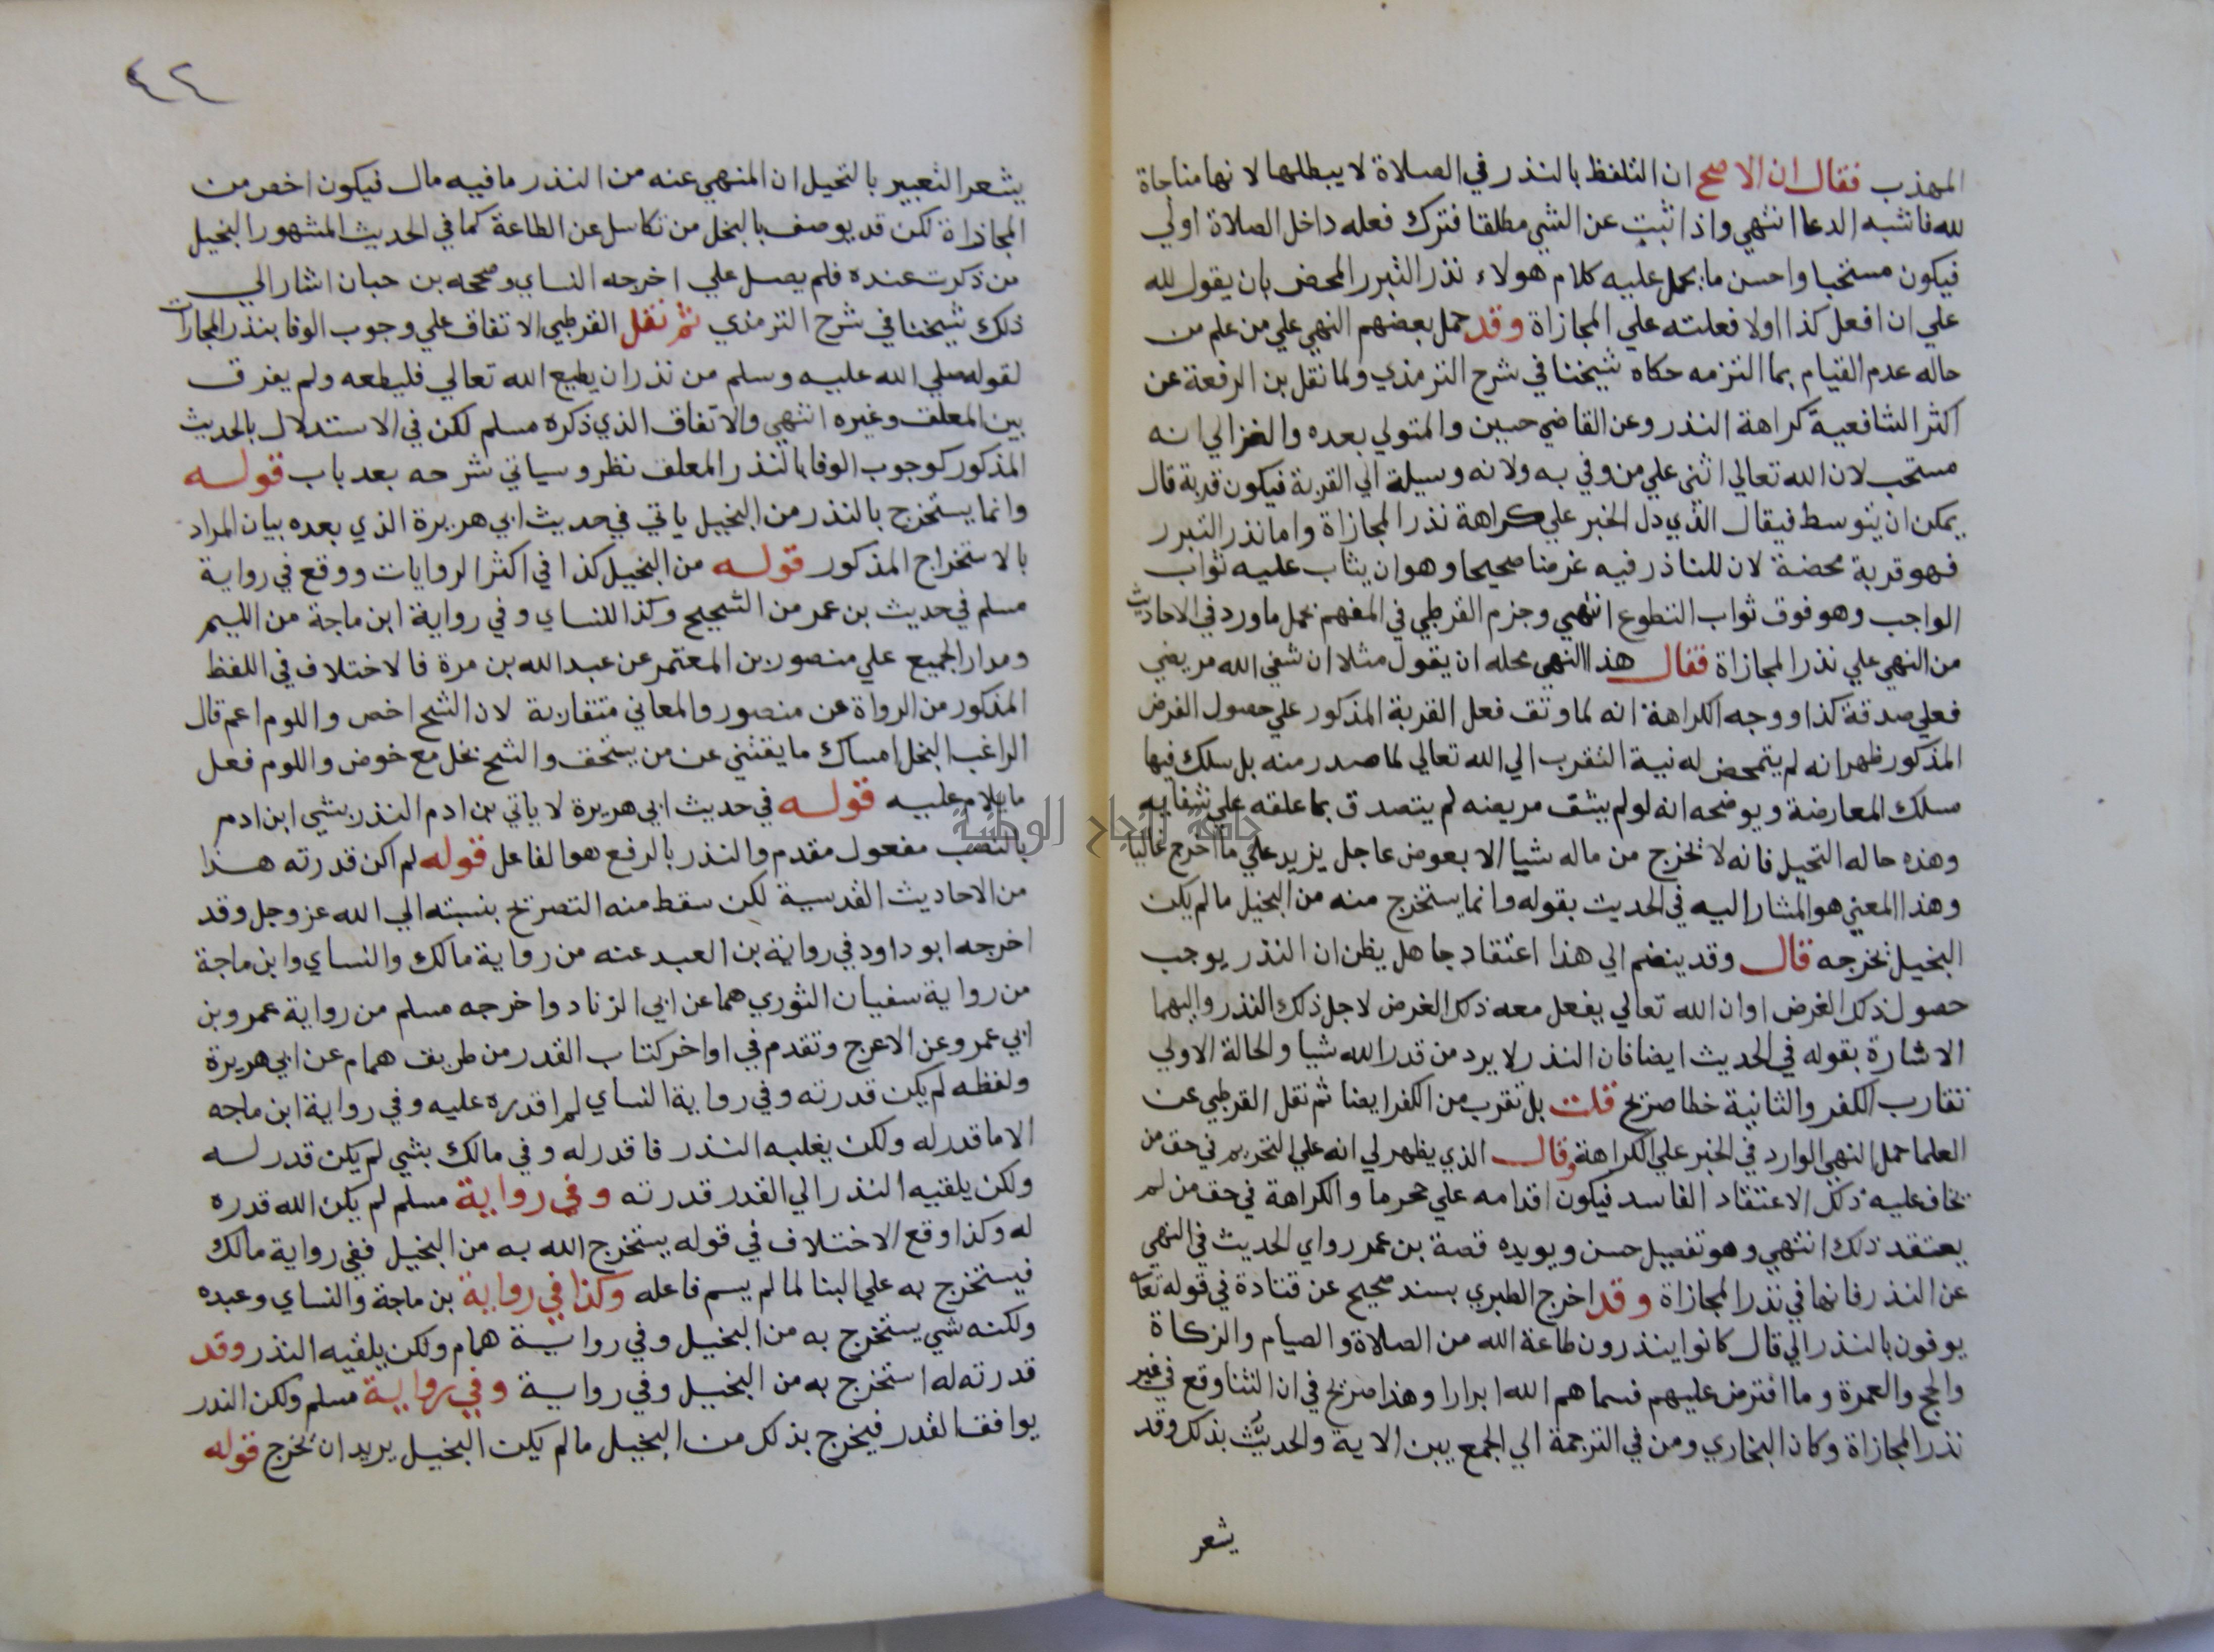 المهذب فقال ان الاصح ان التلفظ بالنذر في الصلاة لا يبطلها لانها مناجاة
لله فاشبه الدعا انتهي واذا ثبت عن الشي مطلقا فترك فعله داخل الصلاة اولي
فيكون مستحبا واحسن ما يحمل عليه كلام هولاء نذر التبرر المحض بان يقول لله
علي ان افعل كذا اولا فعلته علي المجازاة وقد حمل بعضهم النهي علي من علم من
حاله عدم القيام بما التزمه حكاه شيخنا في شرح الترمذي ولما نقل بن الرفعة عن
اكثر الشافعية كراهة النذر وعن القاضي حسين والمتولي بعده والغزالي انه
مستحب لان الله تعالي اثني علي من وفي به ولانه وسيلة الي القربة فيكون قربة قال
يمكن ان يتوسط فيقال الذي دل الخبر علي كراهة نذر المجازاة واما نذر التبرر
فهو قربة محضة لان للناذر فيه غرضا صحيحا وهو ان يثاب عليه ثواب
الواجب وهو فوق ثواب التطوع انتهي وجزم القرطبي في المفهم بحمل ما ورد في الاحاديث
من النهي علي نذر المجازاة فقال هذا النهي محله ان يقول مثلا ان شفي الله مريضي
فعلي صدقة كذا ووجه الكراهة انه لما وقف فعل القربة المذكور علي حصول الغرض
المذكور ظهر انه لم يتمحض له نية التقرب الي الله تعالي لما صدر منه بل سلك فيها
مسلك المعارضة ويوضحه انه لو لم يشف مريضه لم يتصدق بما علقه علي شفايه
وهذه حاله التخيل فانه لا يخرج من ماله شيا الا بعوض عاجل يزيد علي ما اخرج غالبا
وهذا المعني هو المشار اليه في الحديث بقوله وانما يستخرج منه من البخيل ما لم يكن
البخيل يخرجه قال وقد ينضم الي هذا اعتقاد جاهل يظن ان النذر يوجب
حصول ذلك الغرض اوان الله تعالي يفعل معه ذلك الغرض لاجل ذلك النذر واليهما
الاشارة بقوله في الحديث ايضا فان النذر لا يرد من قدر الله شيا والحالة الاولي
تقارب الكفر والثانية خطا صريح قلت بل تقرب من الكفر ايضا ثم نقل القرطبي عن
العلما حمل النهي الوارد في الخبر علي الكراهة وقال الذي يظهر لي انه علي التحريم في حق من
يخاف عليه ذلك الاعتقاد الفاسد فيكون اقدامه علي محرما والكراهة في حق من لم
يعتقد ذلك انتهي وهو تفصيل حسن ويويده قصة بن عمر رواي الحديث في النهي
عن النذر فانها في نذر المجازاة وقد اخرج الطبري بسند صحيح عن قتادة في قوله تعا
يوفون بالنذر الي قال كانوا ينذرون طاعة الله من الصلاة والصيام والزكاة
والحج والعمرة وما افترض عليهم فسماهم الله ابرارا وهذا صريح في ان الثنا وقع في غير
نذر المجازاة وكان البخاري ومن في الترجمة الي الجمع بين الاية والحديث بذلك وقد
يشعر
٤٢
يشعر التعبير بالتخيل ان المنهي عنه من النذر ما فيه مال فيكون اخص من
المجازاة لكن قد يوصف بالبخل من تكاسل عن الطاعة كما في الحديث المشهور البخيل
من ذكرت عنده فلم يصل علي اخرجه النساي وصححه بن حبان اشار الي
ذلك شيخنا في شرح الترمذي ثم نقل القرطبي الاتفاق علي وجوب الوفا بنذر المجازات
لقوله صلي الله عليه وسلم من نذر ان يطيع الله تعالي فليطعه ولم يفرق
بين المعلق وغيره انتهي والاتفاق الذي ذكره مسلم لكن في الاستدلال بالحديث
المذكور كوجوب الوفا بالنذر المعلق نظر وسياتي شرحه بعد باب قوله
وانما يستخرج بالنذر من البخيل ياتي في حديث ابي هريرة الذي بعده بيان المراد
بالاستخراج المذكور قوله من البخيل كذا في اكثر الروايات ووقع في رواية
مسلم في حديث بن عمر من الشحيح وكذا للنساي وفي رواية ابن ماجة من الليم
ومدار الجميع علي منصور بن المعتمر عن عبد الله بن مرة فالاختلاف في اللفظ
المذكور من الرواة عن منصور والمعاني متقاربة لان الشح اخص واللوم اعم قال
الراغب البخل امساك ما يقتني عن من يستحق والشح بخل مع خوض واللوم فعل
ما يلام عليه قوله في حديث ابي هريرة لا ياتي بن ادم النذر بشي ابن ادم
بالنصب مفعول مقدم والنذر بالرفع هو الفاعل قوله لم اكن قدرته هذا
من الاحاديث القدسية لكن سقط منه التصريح بنسبته الي الله عز وجل وقد
اخرجه ابو داود في رواية بن العبد عنه من رواية مالك والنساي وابن ماجة
من رواية سفيان الثوري هما عن ابي الزناد واخرجه مسلم من رواية عمرو بن
ابي عمرو عن الاعرج وتقدم في اواخر كتاب القدر من طريف همام عن ابي هريرة
ولفظه لم يكن قدرته وفي رواية النساي لم اقدره عليه وفي رواية ابن ماجه
الا ما قدر له ولكن يغلبه النذر فاقدر له وفي مالك بشي لم يكن قدر له
ولكن يلقيه النذر الي القدر قدرته وفي رواية مسلم لم يكن الله قدره
له وكذا وقع الاختلاف في قوله يستخرج الله به من البخيل ففي رواية مالك
فيستخرج به علي البنا لما لم يسم فاعله وكذا في رواية بن ماجة والنساي وعبده
ولكنه شي يستخرج به من البخيل وفي رواية همام ولكن يلقيه النذر وقد
قدرته له استخرج به من البخيل وفي رواية وفي رواية مسلم ولكن النذر
يوافق القدر فيخرج بذلك من البخيل ما لم يكن البخيل يريد ان يخرج قوله
جامعة النجاح الوطنية